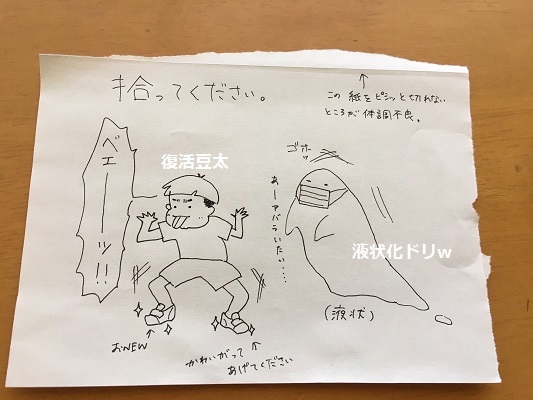 拾ってください。
↑
この紙をピシッと切れない
ところが体調不良。
ベェーーッ!!
復活豆太
ゴホッ
あーアバラいたい....
液状化ドリw
(液状)
↑
おNEW
↑
かわいがって
あげてください